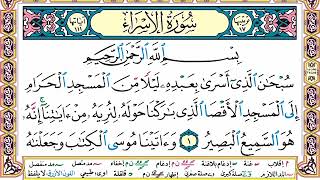 سُورَةُ الإِسْرَاءِ
بِسْمِ اللَّهِ الرَّحْمَٰنِ الرَّحِيمِ
سُبْحَانَ الَّذِي أَسْرَىٰ بِعَبْدِهِ لَيْلًا مِنَ الْمَسْجِدِ الْحَرَامِ
إِلَى الْمَسْجِدِ الْأَقْصَا الَّذِي بَارَكْنَا حَوْلَهُ لِنُرِيَهُ مِنْ ءَايَاتِنَا إِنَّهُ
هُوَ السَّمِيعُ الْبَصِيرُ ١ وَءَاتَيْنَا مُوسَى الْكِتَابَ وَجَعَلْنَاهُ